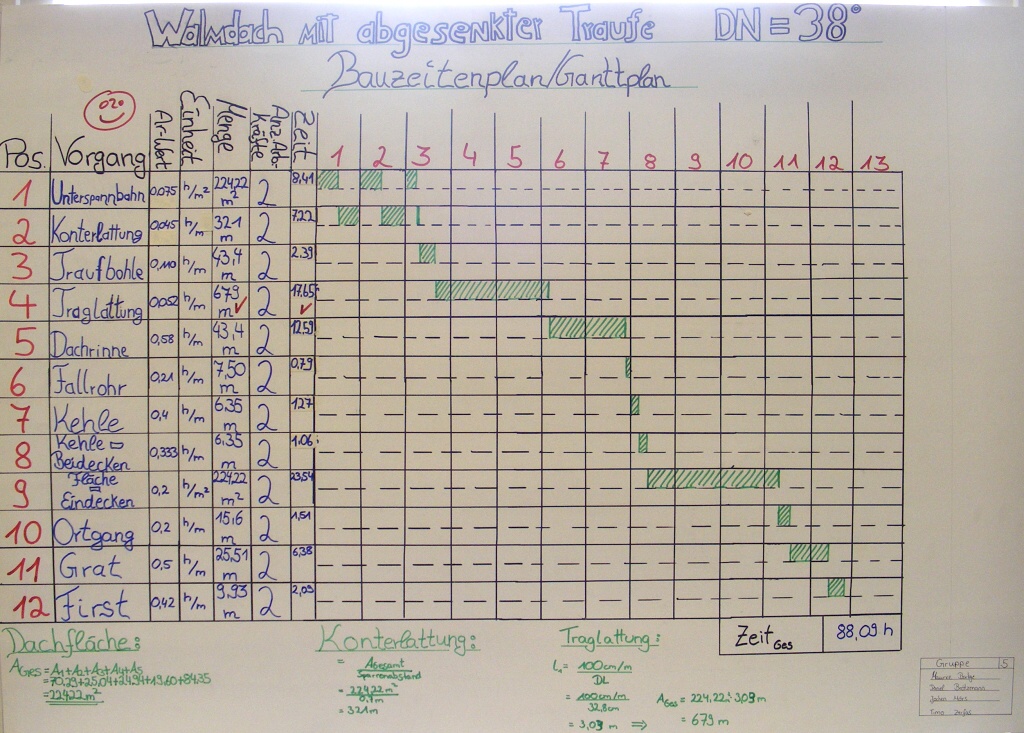 Walmdach mit abgesenkter Traufe DN = 38°
Bauzeitenplan/Ganttplan
Pos. Vorgang Ar-Wert Einheit Menge Anz. Arb. Kräfte Zeit 1 2 3 4 5 6 7 8 9 10 11 12 13
1 Unterspannbahn 0,075 h/m² 224,22 m² 2 8,41
2 Konterlattung 0,045 h/m 321 m 2 7,22
3 Traufbohle 0,110 h/m 43,4 m 2 2.39
4 Traglattung 0,052 h/m 679 m 2 17,65
5 Dachrinne 0,58 h/m 43,4 m 2 12,59
6 Fallrohr 0,21 h/m 7,50 m 2 0,79
7 Kehle 0,4 h/m 6,35 m 2 1,27
8 Kehle Beidecken 0,333 h/m 6,35 m 2 1.06
9 Fläche Eindecken 0,2 h/m² 224,22 m² 2 23,54
10 Ortgang 0,2 h/m 15,6 m 2 1,51
11 Grat 0,5 h/m 25,51 m 2 6,38
12 First 0,42 h/m 9,93 m 2 2,09
Zeit Ges 88,09 h
Dachfläche:
A Ges = A1+A2+A3+A4+A5
= 70,29+25,04+24,94+19,60+84,35
= 224,22 m²
Konterlattung:
= Agesamt
Sparrenabstand
= 224,22 m²
0,7 m
= 321 m
Traglattung:
L = 100 cm/m
DL
= 100 cm/m
32,8 cm
= 3,03 m ⇒
A Ges = 224,22 · 3,03 m
= 679 m
Gruppe 5